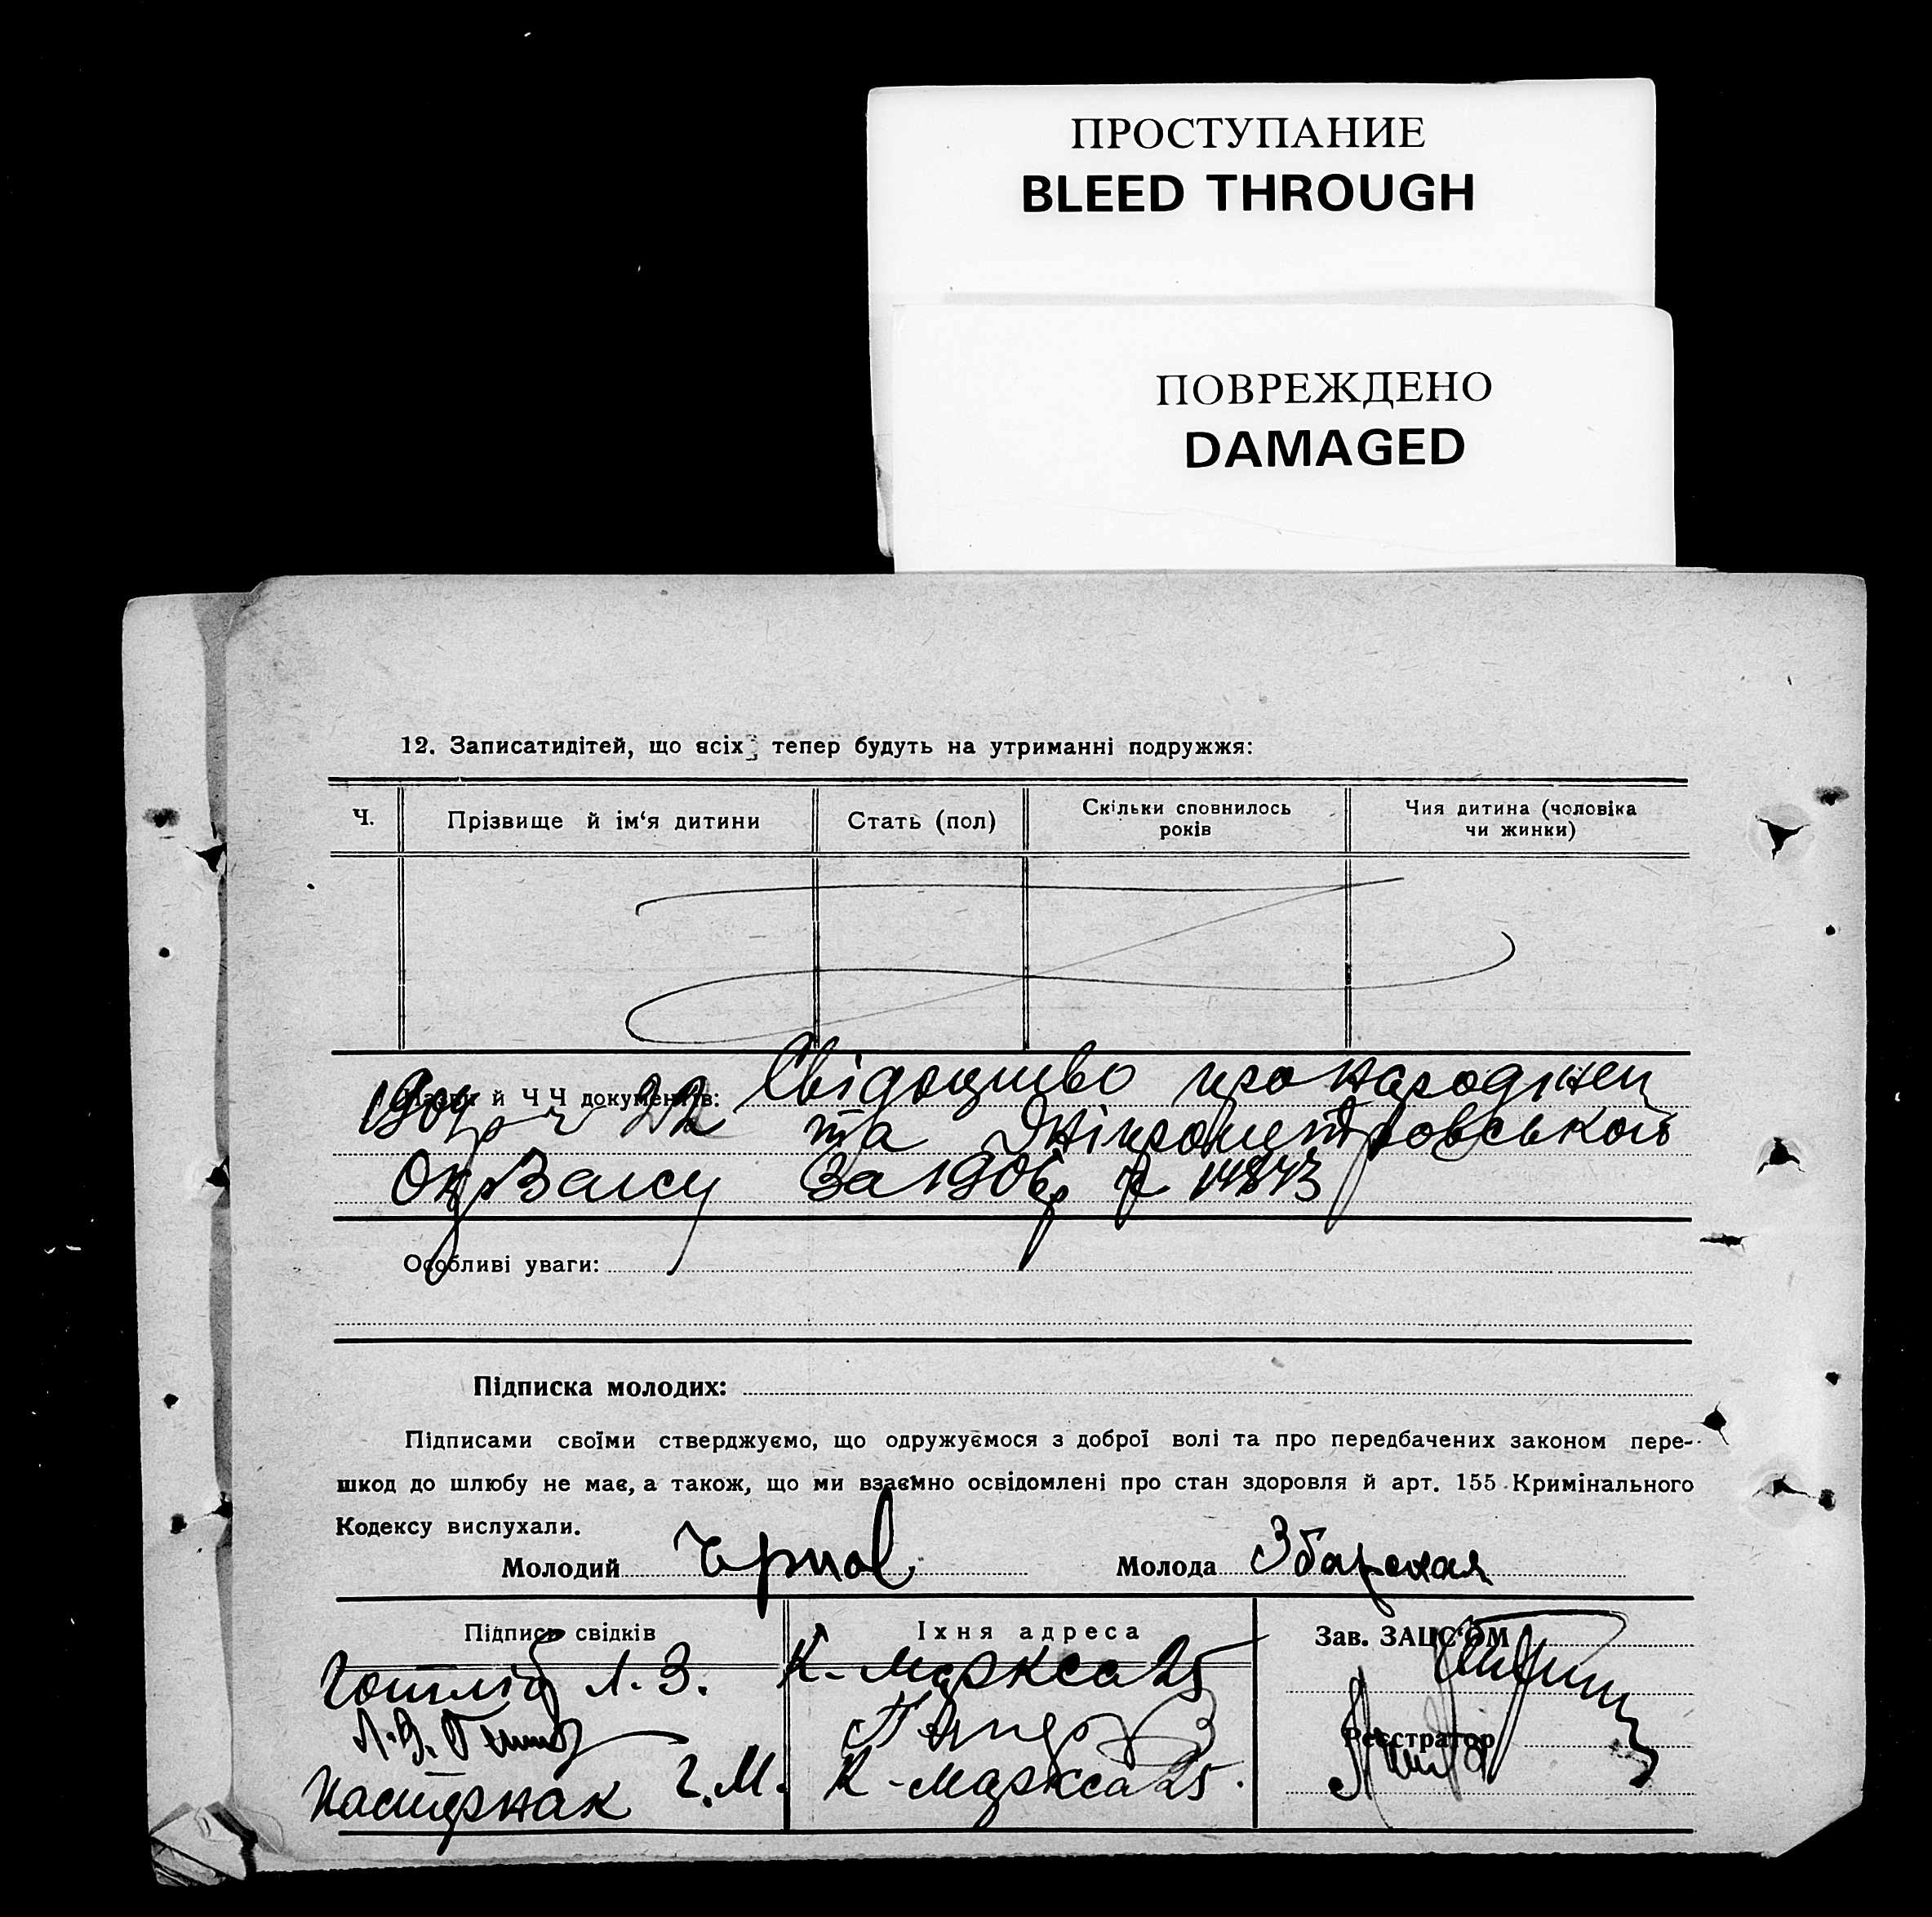 ПРОСТУПАНИЕ
BLEED THROUGH
ПОВРЕЖДЕНО
DAMAGED
12. Записатидітей, що всіх тепер будуть на утриманні подружжя:
Ч. Прізвище й ім'я дитини Стать (пол) Скільки сповнилось років Чия дитина (чоловіка чи жинки)
Назви й Ч Ч документів: Свідоцтво про народжен
1904 р ч 22 та Дніпропетровської
Окр Загсу За 1906 р ч 14843
Особливі уваги:
Підписка молодих:
Підписами своїми стверджуємо, що одружуємося з доброї волі та про передбачених законом пере-
шкод до шлюбу не має, а також, що ми взаємно освідомлені про стан здоровля й арт. 155 Кримінального
Кодексу вислухали.
Молодий Чернов Молода Збарская
Підписи свідків Їхня адреса Зав. ЗАЦС'ОМ
Готліб Л. З. К-Маркса 25
Реєстратор
Пастернак Г. М. К-Маркса 25.